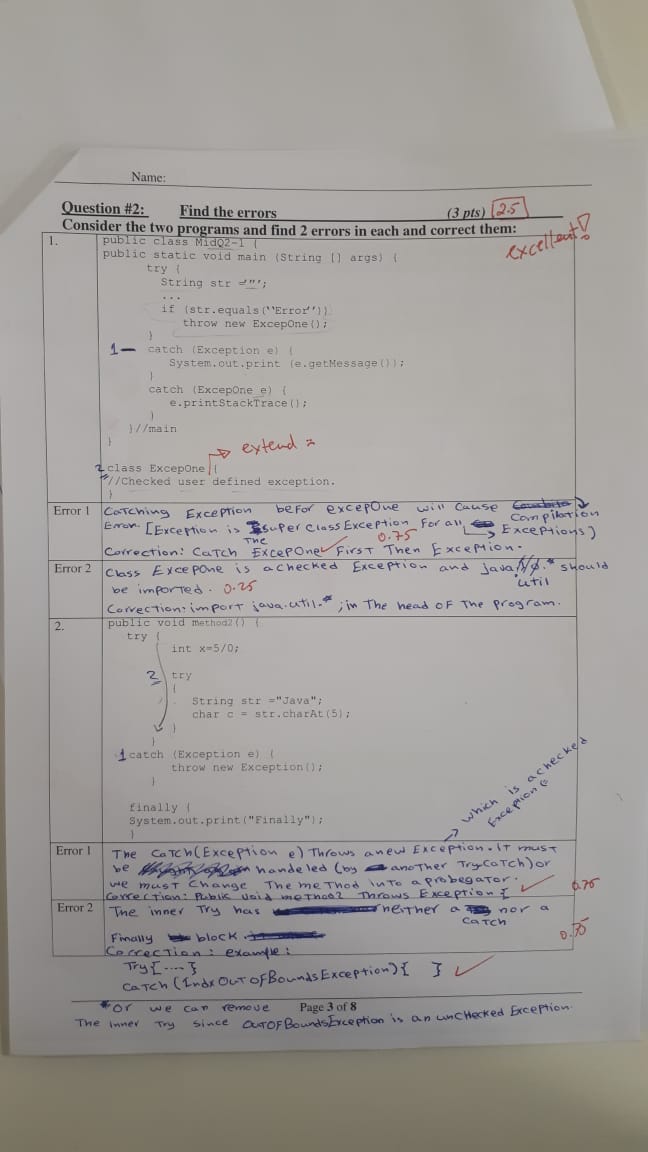 Name:
Question #2: Find the errors (3 pts) 2.5
Consider the two programs and find 2 errors in each and correct them:
excellent!
1.
public class MidQ2-1 {
public static void main (String [] args) {
try {
String str ="";
...
if (str.equals("Error"))
throw new ExcepOne();
}
1- catch (Exception e) {
System.out.print (e.getMessage());
}
catch (ExcepOne e) {
e.printStackTrace();
}
}//main
}
→ extend
2 class ExcepOne {
//Checked user defined exception.
}
Error 1
Catching Exception befor excepOne will cause Compilation
Error. [Exception is The super Class Exception For all Exceptions]
0.75
Correction: Catch ExcepOne First Then Exception.
Error 2
Class ExcepOne is a checked Exception and java.util.* should
be imported. 0.25
Correction: import java.util.*; in The head of The program.
2.
public void method2() {
try {
int x=5/0;
2 try
{
String str ="Java";
char c = str.charAt(5);
}
}
1 catch (Exception e) {
throw new Exception();
}
finally {
System.out.print("Finally");
}
which is a checked
Exception
Error 1
The Catch(Exception e) Throws a new Exception. It must
be handeled (by another Try Catch) or
we must Change The method into a probegator.
Correction: Public Void method2 Throws Exception {
0.75
Error 2
The inner Try has neither a Catch nor a
Finally block.
0.75
Correction: example:
Try{----}
Catch (Indx OutOfBoundsException) { }
*or we can remove
Page 3 of 8
The inner Try since OutOFBoundsException is an unchecked Exception.